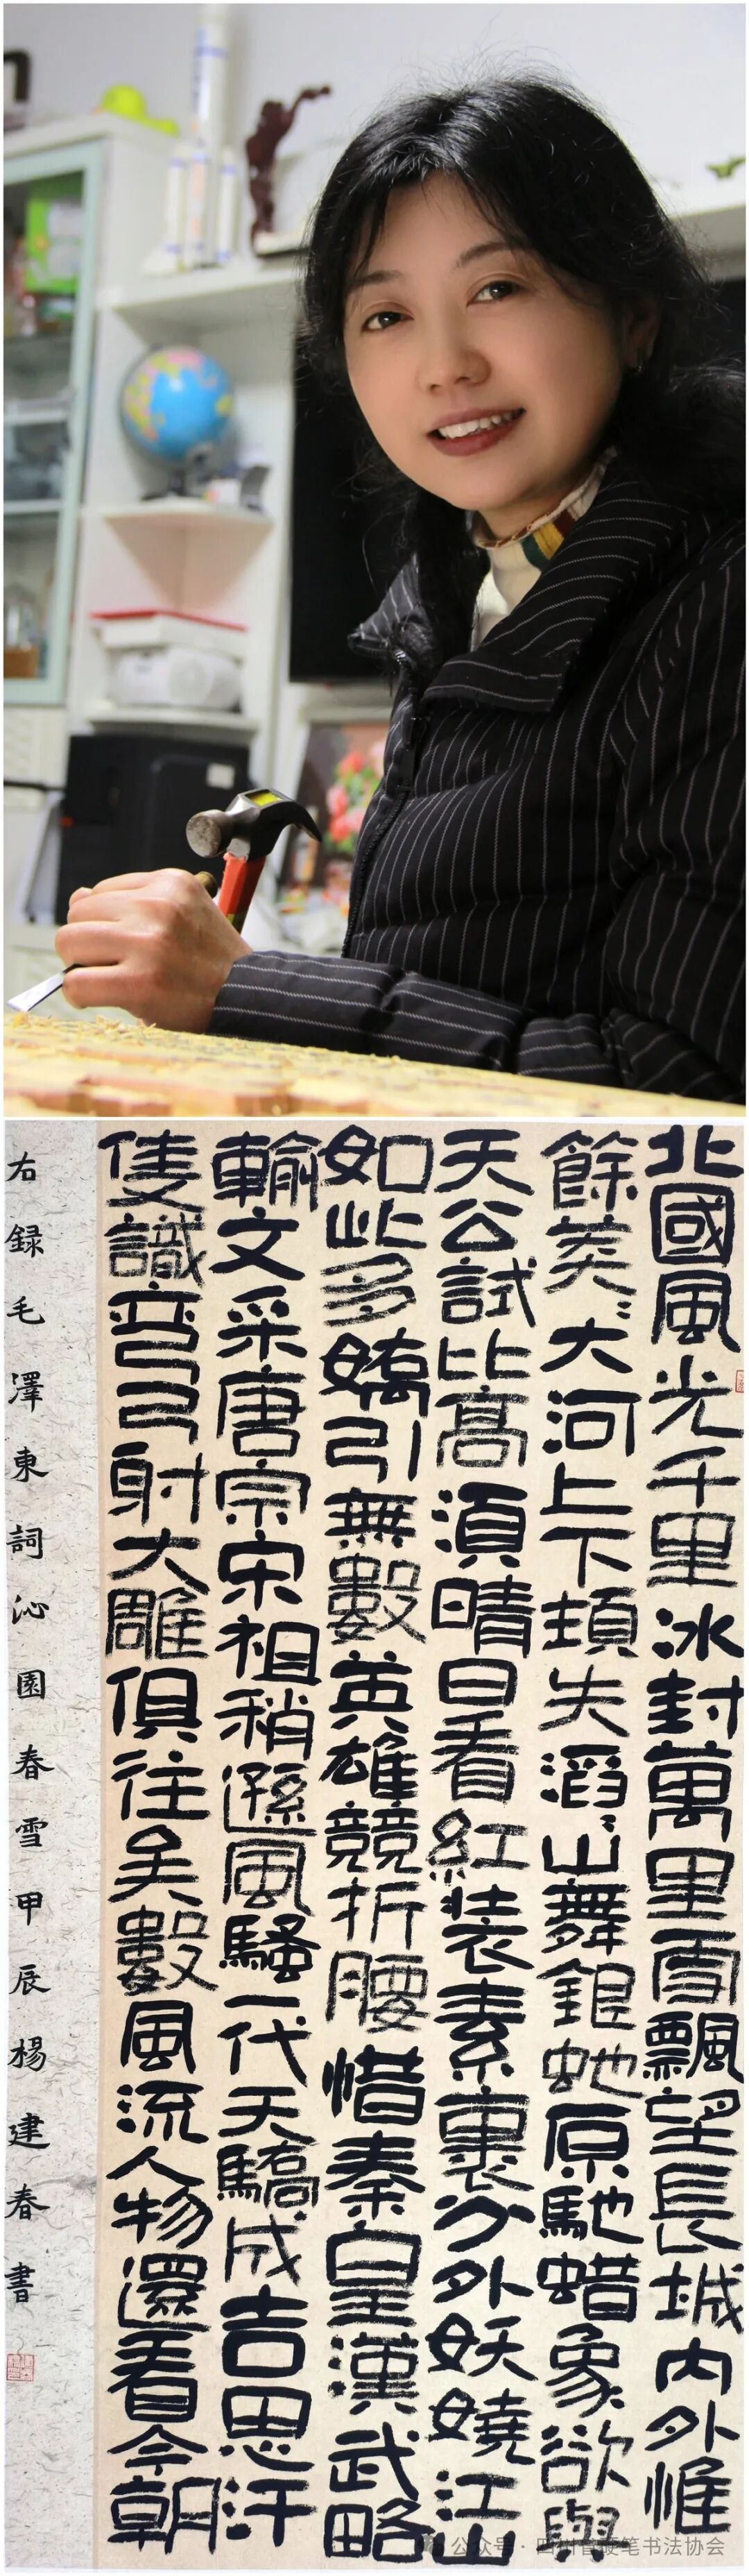 北國風光千里冰封萬里雪飄望長城内外惟
餘莽〻大河上下頓失滔〻山舞銀蛇原馳蜡象欲與
天公試比高須晴日看紅裝素裹分外妖嬈江山
如此多嬌引無數英雄競折腰惜秦皇漢武略
輸文采唐宗宋祖稍遜風騷一代天驕成吉思汗
隻識彎弓射大雕俱往矣數風流人物還看今朝
右録毛澤東詞沁園春雪甲辰楊建春書
公众号 · 四川省硬笔书法协会